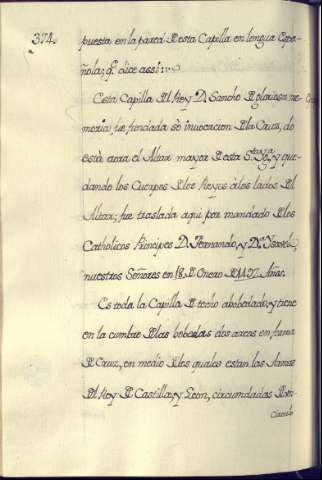 374.
puesta en la pared D esta Capilla en lengua Espa-
ñola; q̃ dice assi:~
Esta Capilla Dl Rey D. Sancho D gloriosa me-
moria, fue fundada só invocacion D la Cruz, do
está aora el Altar mayor D esta S.ta Ygl.a y que-
dando los Cuerpos D los Reyes á los lados Dl
Altar; fue traslada aqui por mandado D los
Catholicos Principes D. Fernando, y D.a Ysavel,
nuestros Señores en D Enero D Años.
Es toda la Capilla D techo abobedado; y tiene
en la cumbre D las bobedas dos arcos en forma
D Cruz, en medio D los quales estan las Armas
Dl Rey D Castilla, y Leon, circundadas D un
Circulo